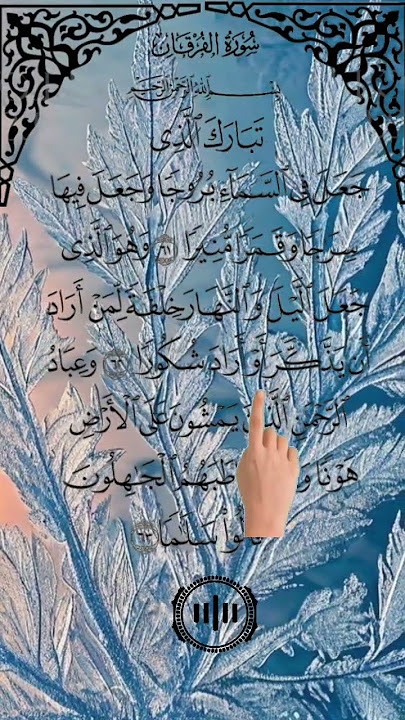 سُورَةُ الفُرْقَانِ
بِسْمِ اللَّهِ الرَّحْمَٰنِ الرَّحِيمِ
تَبَارَكَ ٱلَّذِى
جَعَلَ فِى ٱلسَّمَآءِ بُرُوجًا وَجَعَلَ فِيهَا
سِرَٰجًا وَقَمَرًا مُّنِيرًا ٦١ وَهُوَ ٱلَّذِى
جَعَلَ ٱلَّيْلَ وَٱلنَّهَارَ خِلْفَةً لِّمَنْ أَرَادَ
أَن يَذَّكَّرَ أَوْ أَرَادَ شُكُورًا ٦٢ وَعِبَادُ
ٱلرَّحْمَٰنِ يَمْشُونَ عَلَى ٱلْأَرْضِ
هَوْنًا ٱلْجَٰهِلُونَ
سَلَٰمًا ٦٣